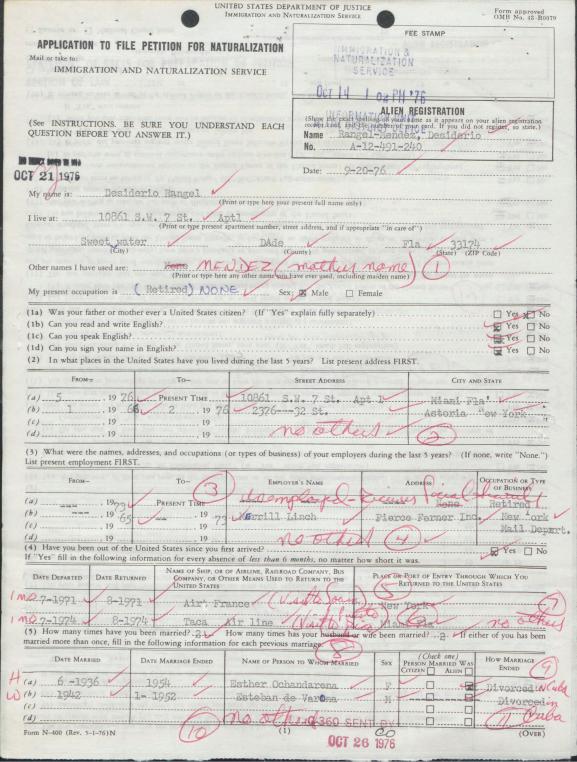 UNITED STATES DEPARTMENT OF JUSTICE
IMMIGRATION AND NATURALIZATION SERVICE
Form approved
OMB No. 43-R0079
APPLICATION TO FILE PETITION FOR NATURALIZATION
Mail or take to:
IMMIGRATION AND NATURALIZATION SERVICE
FEE STAMP
IMMIGRATION &
NATURALIZATION
SERVICE
Oct 14 1 02 PM '76
INFORMATION
(See INSTRUCTIONS. BE SURE YOU UNDERSTAND EACH QUESTION BEFORE YOU ANSWER IT.)
ALIEN REGISTRATION
(Show the exact spelling of your name as it appears on your alien registration receipt card, and the number of your card. If you did not register, so state.)
Name Rangel-Mendez, Desiderio
No. A-12-491-240
OCT 21 1976
Date: 9-20-76
My name is: Desiderio Rangel
(Print or type here your present full name only)
I live at: 10861 S.W. 7 St. Apt1
(Print or type present apartment number, street address, and if appropriate "in care of")
Sweet water DAde Fla 33174
(City) (County) (State) (ZIP Code)
Other names I have used are: None MENDEZ (mothers name) 1
(Print or type here any other names you have ever used, including maiden name)
My present occupation is (Retired) NONE Sex: Male Female
(1a) Was your father or mother ever a United States citizen? (If "Yes" explain fully separately) Yes No
(1b) Can you read and write English? Yes No
(1c) Can you speak English? Yes No
(1d) Can you sign your name in English? Yes No
(2) In what places in the United States have you lived during the last 5 years? List present address FIRST.
FROM— TO— STREET ADDRESS CITY AND STATE
(a) 5 , 19 76 PRESENT TIME 10861 S.W. 7 St. Apt 1 Miami Fla
(b) 1 , 19 66 2 , 19 76 2376---32 St. Astoria "ew York
(c) , 19 , 19 no others 2
(d) , 19 , 19
(3) What were the names, addresses, and occupations (or types of business) of your employers during the last 5 years? (If none, write "None.")
List present employment FIRST.
FROM— TO— EMPLOYER'S NAME ADDRESS OCCUPATION OR TYPE OF BUSINESS
(a) --- , 19 73 PRESENT TIME 3 Unemployed - Receives Social Security None Retired
(b) --- , 19 65 -- , 19 73 Merrill Linch Pierce Ferner Inc. New York
(c) , 19 , 19 Mail Depart.
(d) , 19 , 19 no others 4
(4) Have you been out of the United States since you first arrived? Yes No
If "Yes" fill in the following information for every absence of less than 6 months, no matter how short it was.
DATE DEPARTED DATE RETURNED NAME OF SHIP, OR OF AIRLINE, RAILROAD COMPANY, BUS COMPANY, OR OTHER MEANS USED TO RETURN TO THE UNITED STATES PLACE OR PORT OF ENTRY THROUGH WHICH YOU RETURNED TO THE UNITED STATES
1 mo 7-1971 8-1971 Air France New York 7
1 mo 7-1974 8-1974 Taca Air line no others
(5) How many times have you been married? 2 How many times has your husband or wife been married? 2 If either of you has been
married more than once, fill in the following information for each previous marriage. 8
DATE MARRIED DATE MARRIAGE ENDED NAME OF PERSON TO WHOM MARRIED SEX (Check one) PERSON MARRIED WAS CITIZEN ALIEN HOW MARRIAGE ENDED 9
H (a) 6 -1936 1954 Esther Ochandarena F Divorced in Cuba
W (b) 1942 1- 1952 Esteban de Varona M Divorced in
(c) 11 Cuba
(d) 10 no others
360 SENT BY
Form N-400 (Rev. 5-1-76)N (1) (OVER)
OCT 26 1976